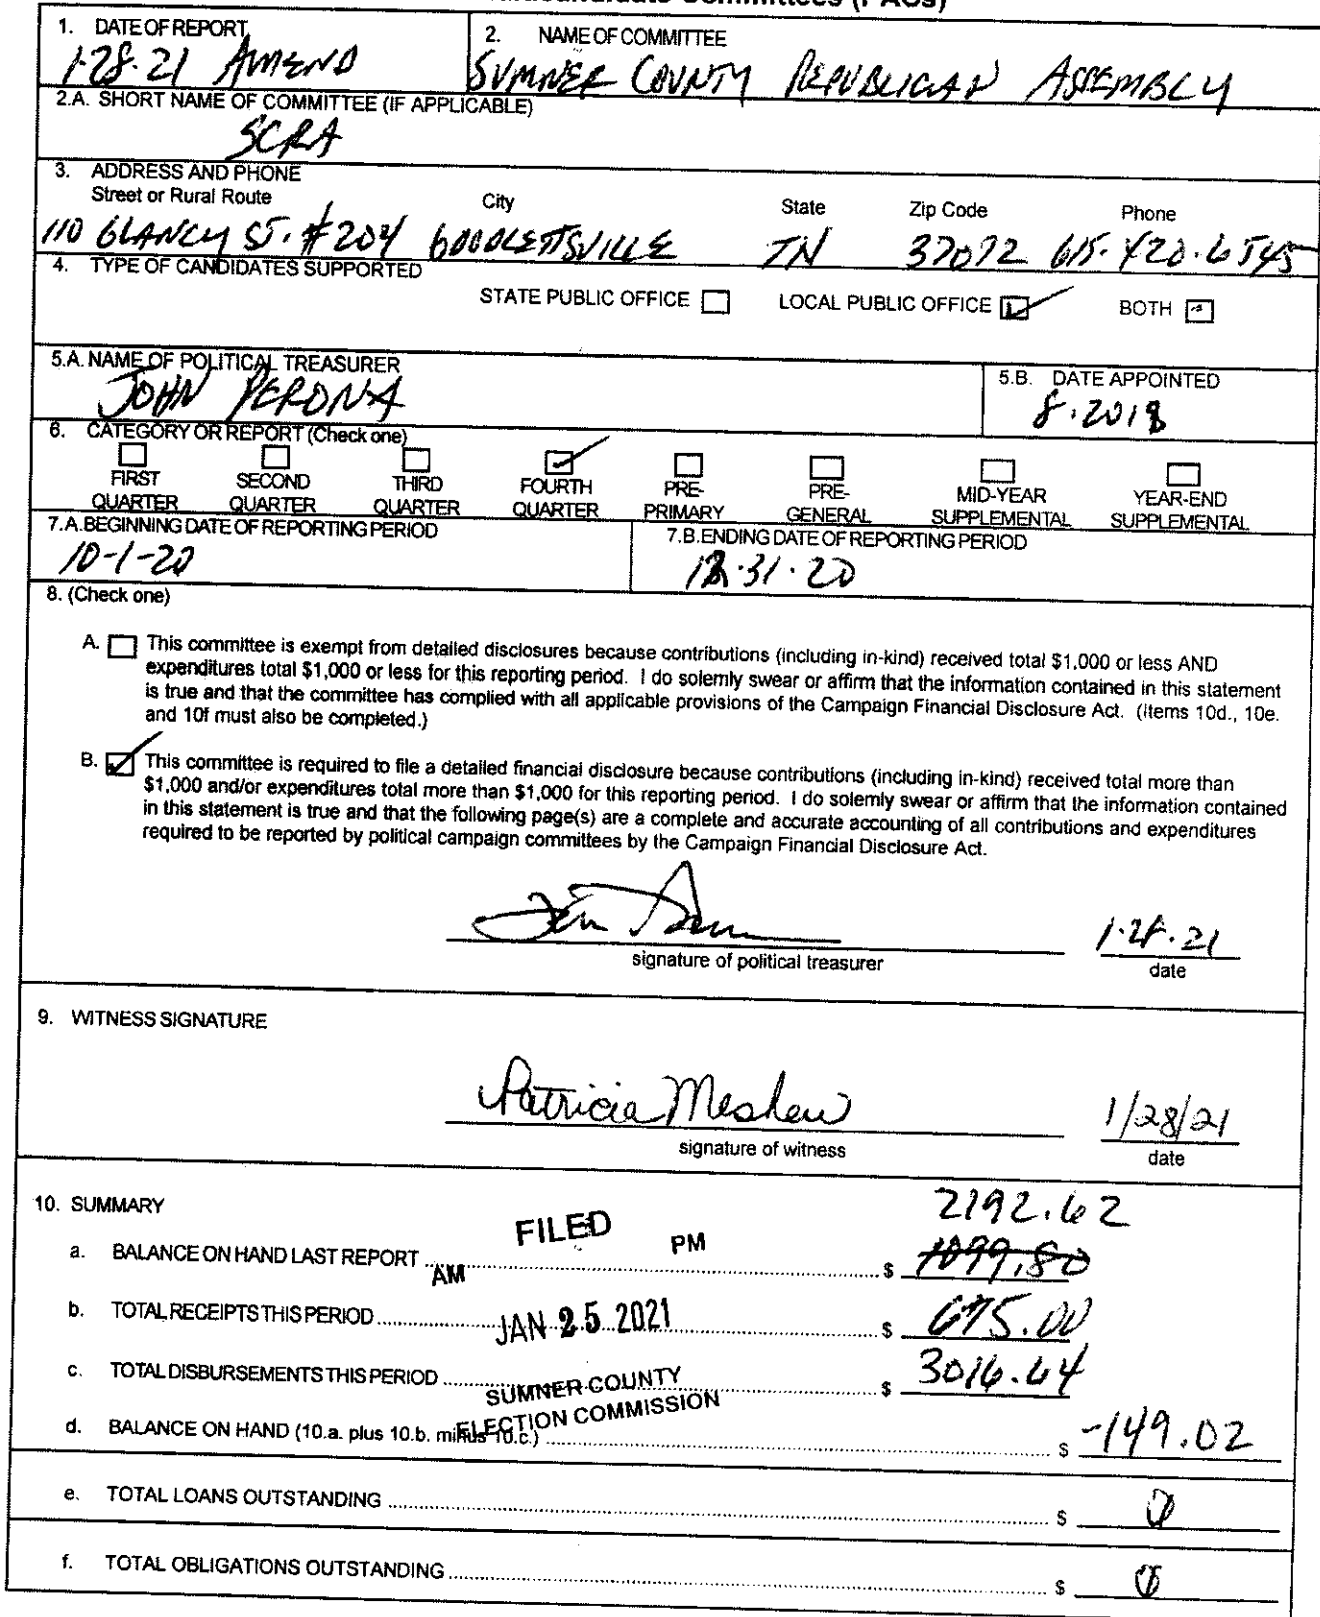 1. DATE OF REPORT
1-28-21 AMEND
2. NAME OF COMMITTEE
SUMNER COUNTY REPUBLICAN ASSEMBLY
2.A. SHORT NAME OF COMMITTEE (IF APPLICABLE)
SCRA
3. ADDRESS AND PHONE
Street or Rural Route City State Zip Code Phone
110 GLANCY ST. #204 GOODLETTSVILLE TN 37072 615-420-6545
4. TYPE OF CANDIDATES SUPPORTED
STATE PUBLIC OFFICE LOCAL PUBLIC OFFICE BOTH
5.A. NAME OF POLITICAL TREASURER
JOHN PERONA
5.B. DATE APPOINTED
8.2018
6. CATEGORY OR REPORT (Check one)
FIRST QUARTER
SECOND QUARTER
THIRD QUARTER
FOURTH QUARTER
PRE-PRIMARY
PRE-GENERAL
MID-YEAR SUPPLEMENTAL
YEAR-END SUPPLEMENTAL
7.A. BEGINNING DATE OF REPORTING PERIOD
10-1-20
7.B. ENDING DATE OF REPORTING PERIOD
12.31.20
8. (Check one)
A. This committee is exempt from detailed disclosures because contributions (including in-kind) received total $1,000 or less AND
expenditures total $1,000 or less for this reporting period. I do solemly swear or affirm that the information contained in this statement
is true and that the committee has complied with all applicable provisions of the Campaign Financial Disclosure Act. (Items 10d., 10e.
and 10f must also be completed.)
B. This committee is required to file a detailed financial disclosure because contributions (including in-kind) received total more than
$1,000 and/or expenditures total more than $1,000 for this reporting period. I do solemly swear or affirm that the information contained
in this statement is true and that the following page(s) are a complete and accurate accounting of all contributions and expenditures
required to be reported by political campaign committees by the Campaign Financial Disclosure Act.
1.28.21
signature of political treasurer date
9. WITNESS SIGNATURE
Patricia Meshew 1/28/21
signature of witness date
10. SUMMARY
2192.62
a. BALANCE ON HAND LAST REPORT $ 1099.80
b. TOTAL RECEIPTS THIS PERIOD $ 675.00
c. TOTAL DISBURSEMENTS THIS PERIOD $ 3016.64
d. BALANCE ON HAND (10.a. plus 10.b. minus 10.c.) $ -149.02
e. TOTAL LOANS OUTSTANDING $ 0
f. TOTAL OBLIGATIONS OUTSTANDING $ 0
FILED
AM PM
JAN 25 2021
SUMNER COUNTY
ELECTION COMMISSION